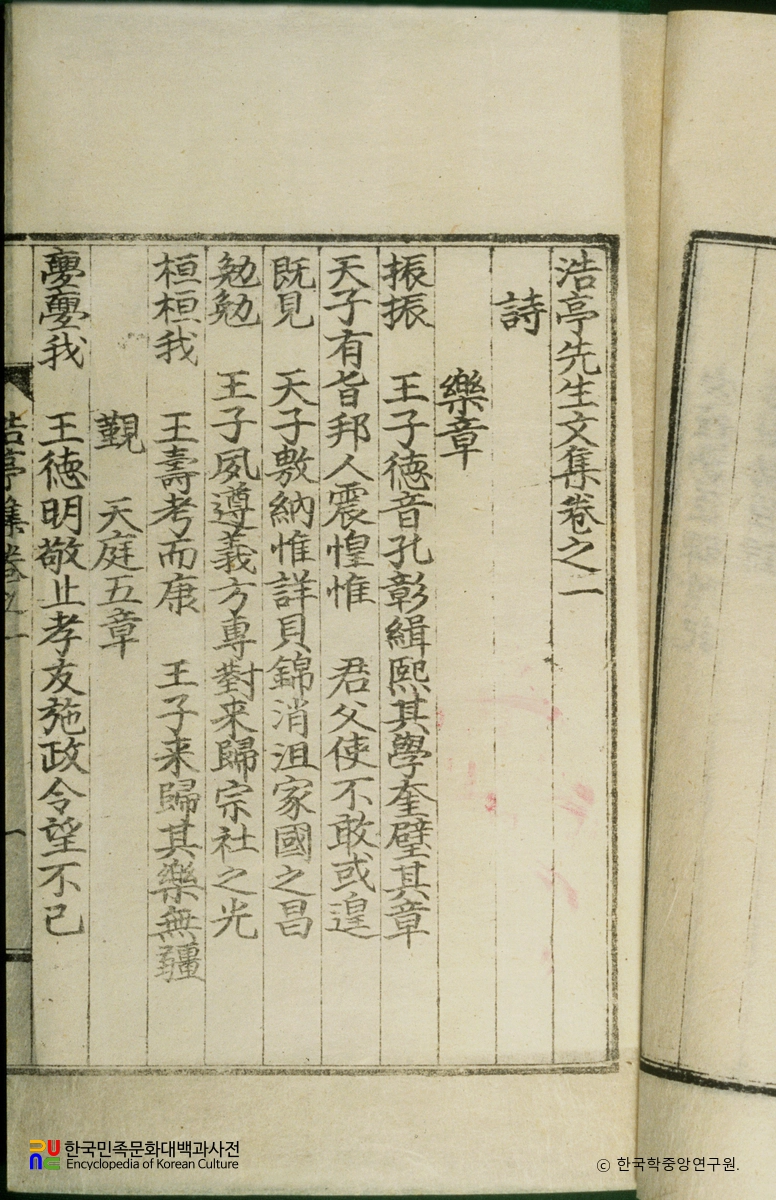 浩亭先生文集卷之一
詩
樂章
振振 王子德音孔彰緝熙其學奎壁其章
天子有旨邦人震惶惟 君父使不敢或遑
既見 天子敷納惟詳貝錦消沮家國之昌
勉勉 王子夙遵義方專對来歸宗社之光
桓桓我 王壽考而康 王子来歸其樂無疆
覲 天庭五章
亹亹我 王德明敬止孝友施政令望不已
浩亭集卷之一
一
한국민족문화대백과사전
Encyclopedia of Korean Culture
ⓒ 한국학중앙연구원.